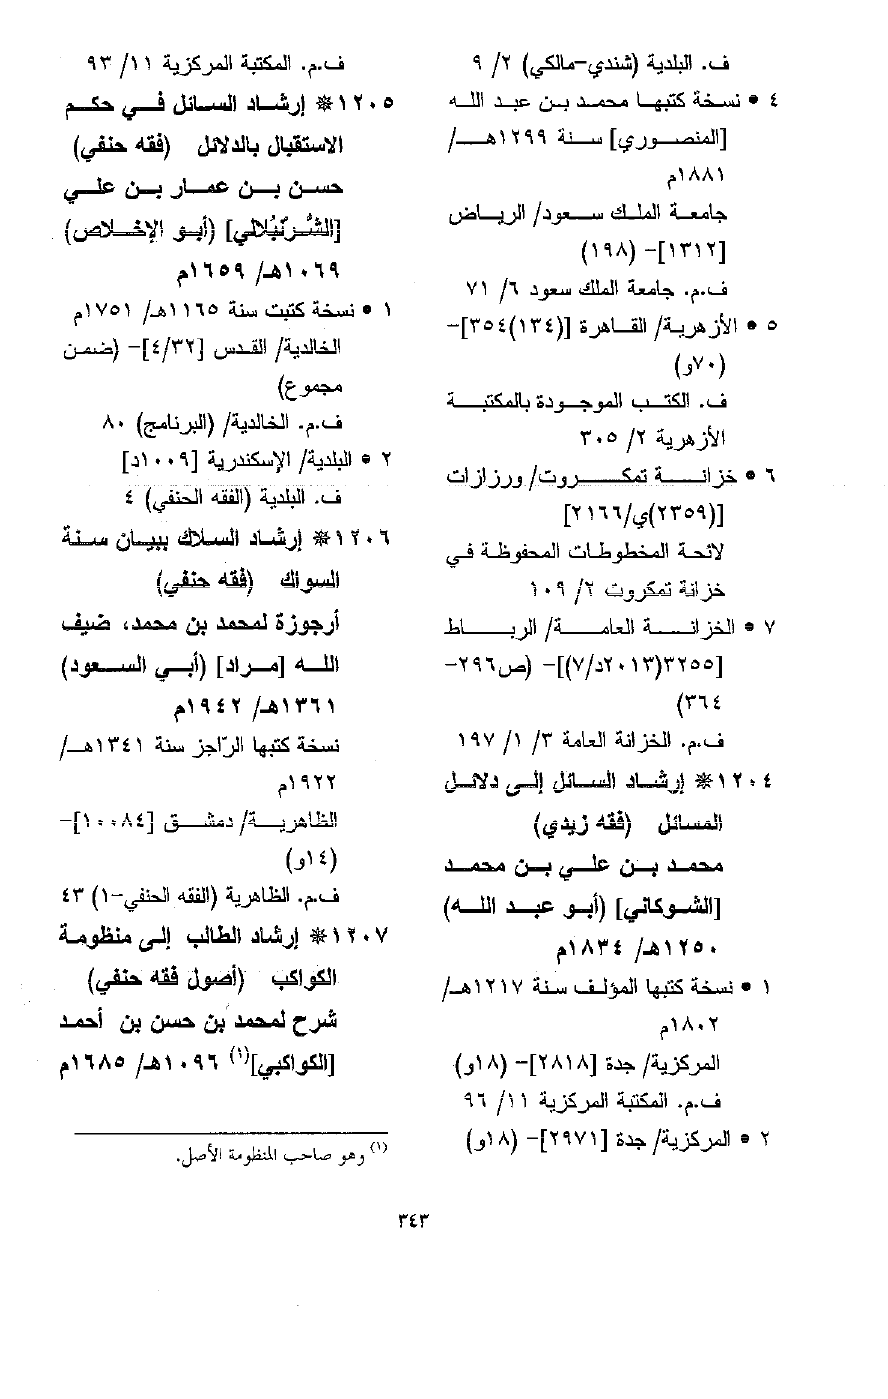 ف. البلدية (شندي-مالكي) ٢/ ٩
٤ • نسخة كتبها محمد بن عبد الله
[المنصوري] سنة ١٢٩٩هـ/
١٨٨١م
جامعة الملك سعود/ الرياض
[١٣١٢]- (١٩٨)
ف.م. جامعة الملك سعود ٦/ ٧١
٥ • الأزهرية/ القاهرة [(١٣٤)٣٥٤]-
(٧٠و)
ف. الكتب الموجودة بالمكتبة
الأزهرية ٢/ ٣٠٥
٦ • خزانة تمكروت/ ورزازات
[(٢٣٥٩)ي/٢١٦٦]
لائحة المخطوطات المحفوظة في
خزانة تمكروت ٢/ ١٠٩
٧ • الخزانة العامة/ الرباط
[٣٢٥٥(٢٠١٣د/٧)]- (ص٢٩٦-
٣٦٤)
ف.م. الخزانة العامة ٣/ ١/ ١٩٧
١٢٠٤ ❊ إرشاد السائل إلى دلائل
المسائل (فقه زيدي)
محمد بن علي بن محمد
[الشوكاني] (أبو عبد الله)
١٢٥٠هـ/ ١٨٣٤م
١ • نسخة كتبها المؤلف سنة ١٢١٧هـ/
١٨٠٢م
المركزية/ جدة [٢٨١٨]- (١٨و)
ف.م. المكتبة المركزية ١١/ ٩٦
٢ • المركزية/ جدة [٢٩٧١]- (١٨و)
ف.م. المكتبة المركزية ١١/ ٩٣
١٢٠٥ ❊ إرشاد السائل في حكم
الاستقبال بالدلائل (فقه حنفي)
حسن بن عمار بن علي
[الشُّرُنْبُلالي] (أبو الإخلاص)
١٠٦٩هـ/ ١٦٥٩م
١ • نسخة كتبت سنة ١١٦٥هـ/ ١٧٥١م
الخالدية/ القدس [٤/٣٢]- (ضمن
مجموع)
ف.م. الخالدية/ (البرنامج) ٨٠
٢ • البلدية/ الإسكندرية [١٠٠٩د]
ف. البلدية (الفقه الحنفي) ٤
١٢٠٦ ❊ إرشاد السلاك ببيان سنة
السواك (فقه حنفي)
أرجوزة لمحمد بن محمد، ضيف
الله [مراد] (أبي السعود)
١٣٦١هـ/ ١٩٤٢م
نسخة كتبها الرّاجز سنة ١٣٤١هـ/
١٩٢٢م
الظاهرية/ دمشق [١٠٠٨٤]-
(١٤و)
ف.م. الظاهرية (الفقه الحنفي-١) ٤٣
١٢٠٧ ❊ إرشاد الطالب إلى منظومة
الكواكب (أصول فقه حنفي)
شرح لمحمد بن حسن بن أحمد
[الكواكبي](١) ١٠٩٦هـ/ ١٦٨٥م
(١) وهو صاحب المنظومة الأصل.
٣٤٣